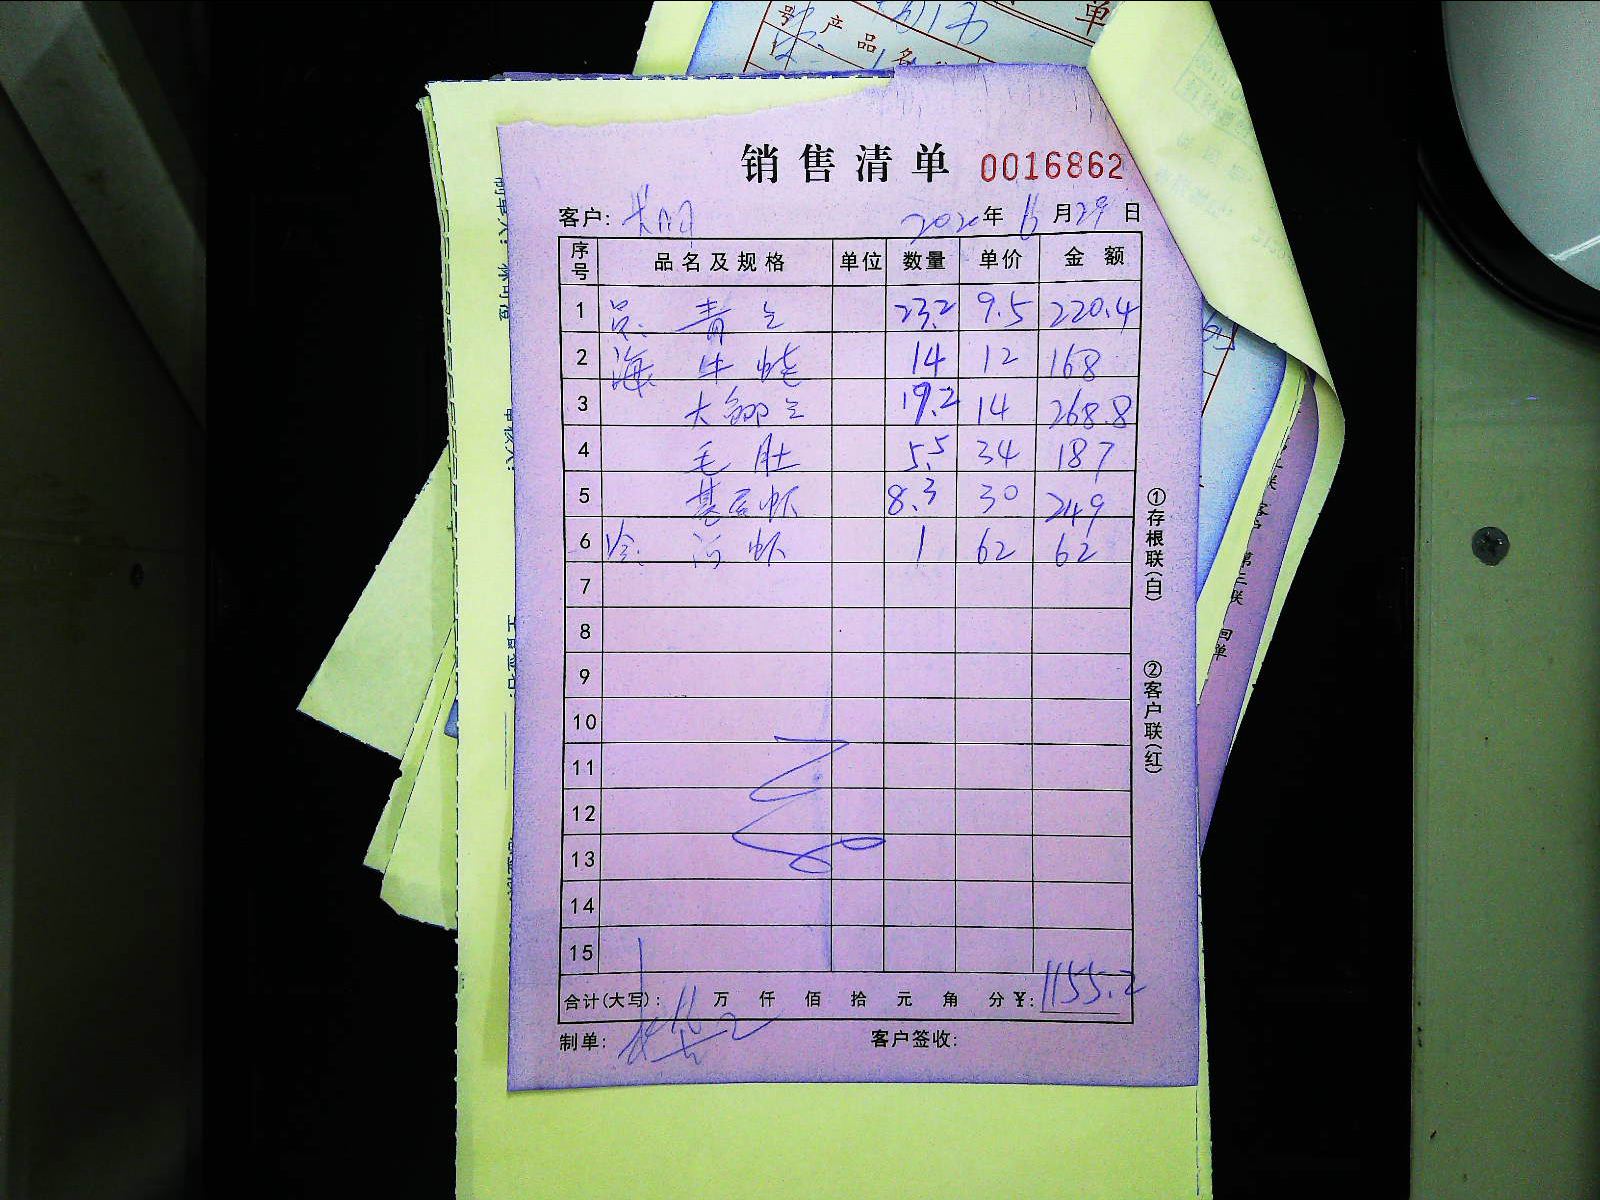 单
号 产品名
销售清单 0016862
客户: 2020年 月29日
序号 品名及规格 单位 数量 单价 金额
1 青 23.2 9.5 220.4
2 海 牛蛙 14 12 168
3 大 19.2 14 268.8
4 毛肚 5.5 34 187
5 基尾虾 8.3 30 249
6 虾 1 62 62
7
8
9
10
11
12
13
14
15
合计(大写): 万 仟 佰 拾 元 角 分 ¥: 1155.2
制单: 客户签收:
①存根联(白)
②客户联(红)
第三联 回单